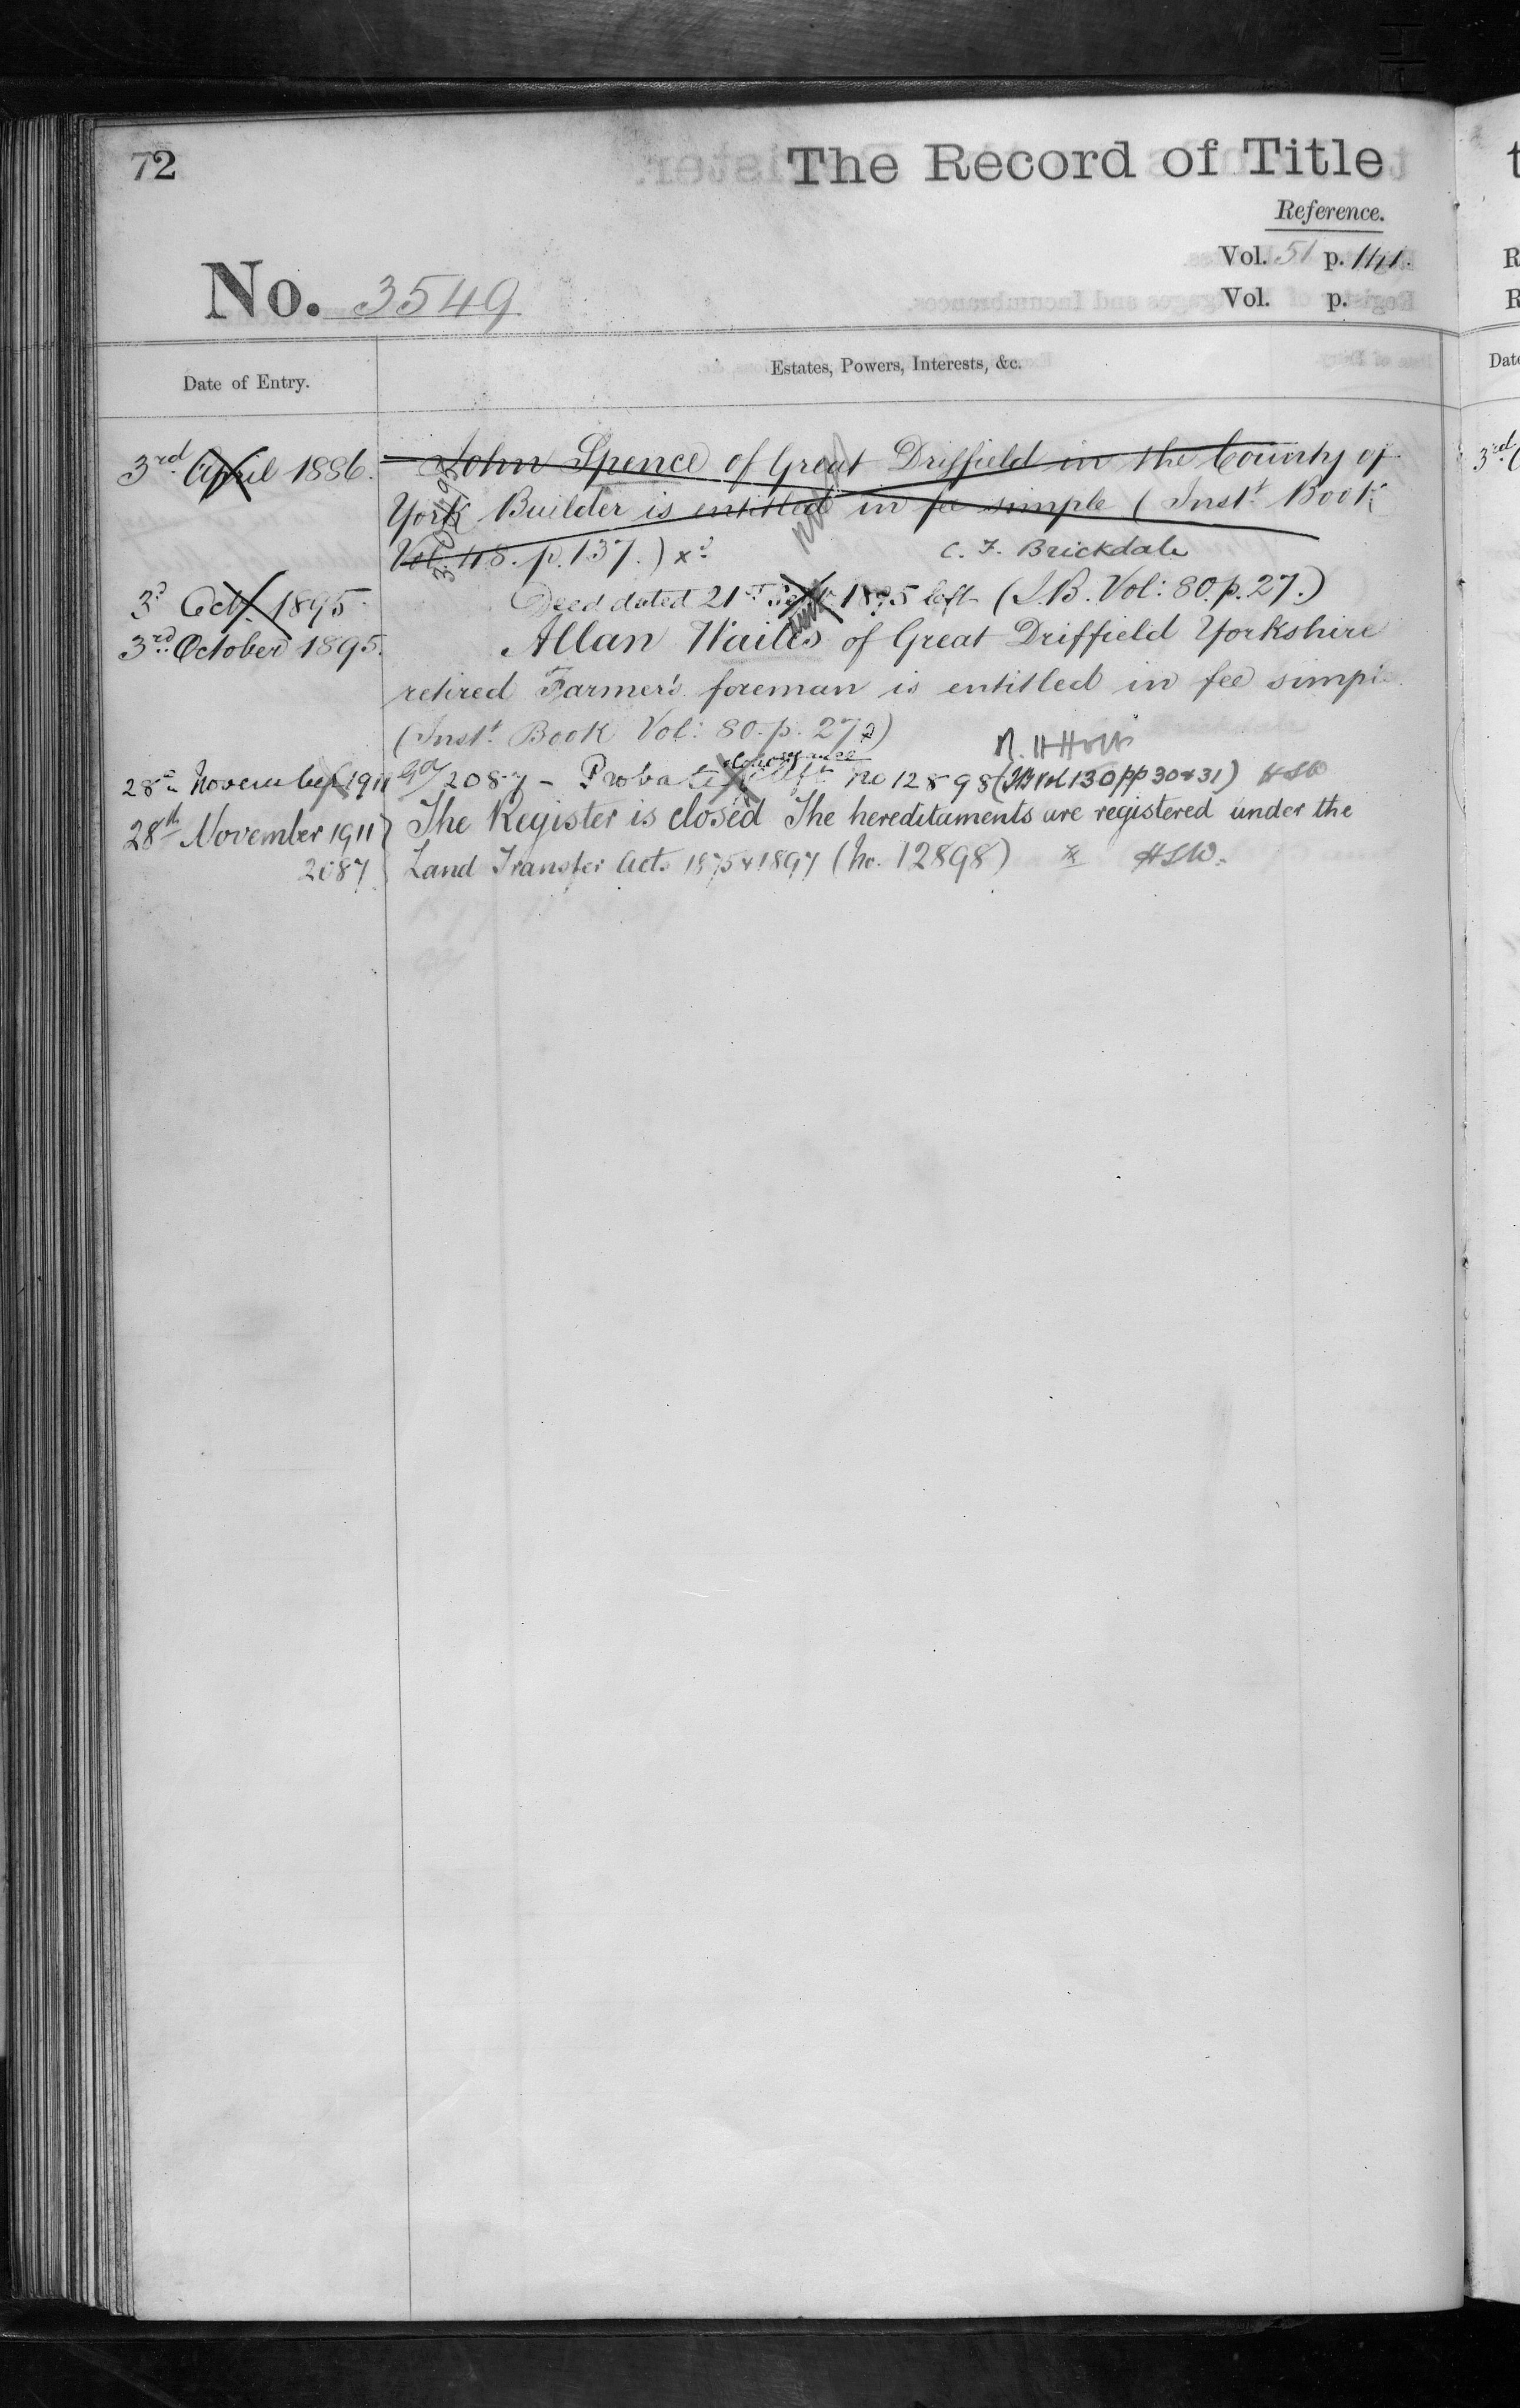 72
The Record of Title
Reference.
Vol. 51 p. 141.
Vol. p.
No. 3549
Date of Entry.
Estates, Powers, Interests, &c.
3rd April 1886.
John Spence of Great Driffield in the County of
York Builder is entitled in fee simple (Inst. Book
Vol. 48. p. 137.)
C. F. Brickdale
3d Oct. 1895
Deed dated 21st Sept. 1895 left (I.B. Vol: 80. p. 27.)
3rd October 1895.
Allan Wailes of Great Driffield Yorkshire
retired Farmer's foreman is entitled in fee simple
(Inst. Book Vol: 80. p. 27)
28th November 1911
2087 - Probate & Conveyance left no 12898 (IB Vol 130 pp 30 & 31) HSW
28th November 1911
The Register is closed The hereditaments are registered under the
2087
Land Transfer Acts 1875 & 1897 (No. 12898) HSW.